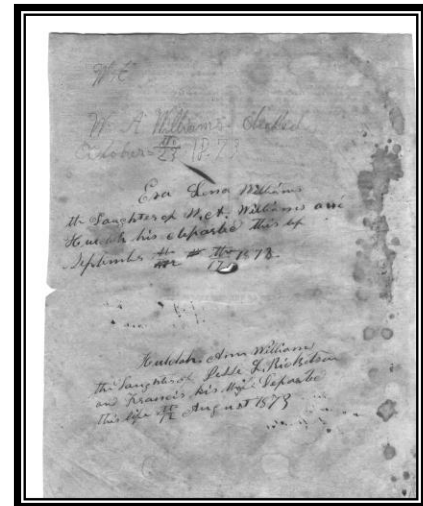 W. E
W A Williams
October 23 18 73
Eva Lena Williams
the Daughter of W. A. Williams and
Huldah his deparbe this
September 17 1873
Huldah Ann William
the Daughter of Jesse L. Ricketson
and Francis his Wife Deparbe
this life August 1873